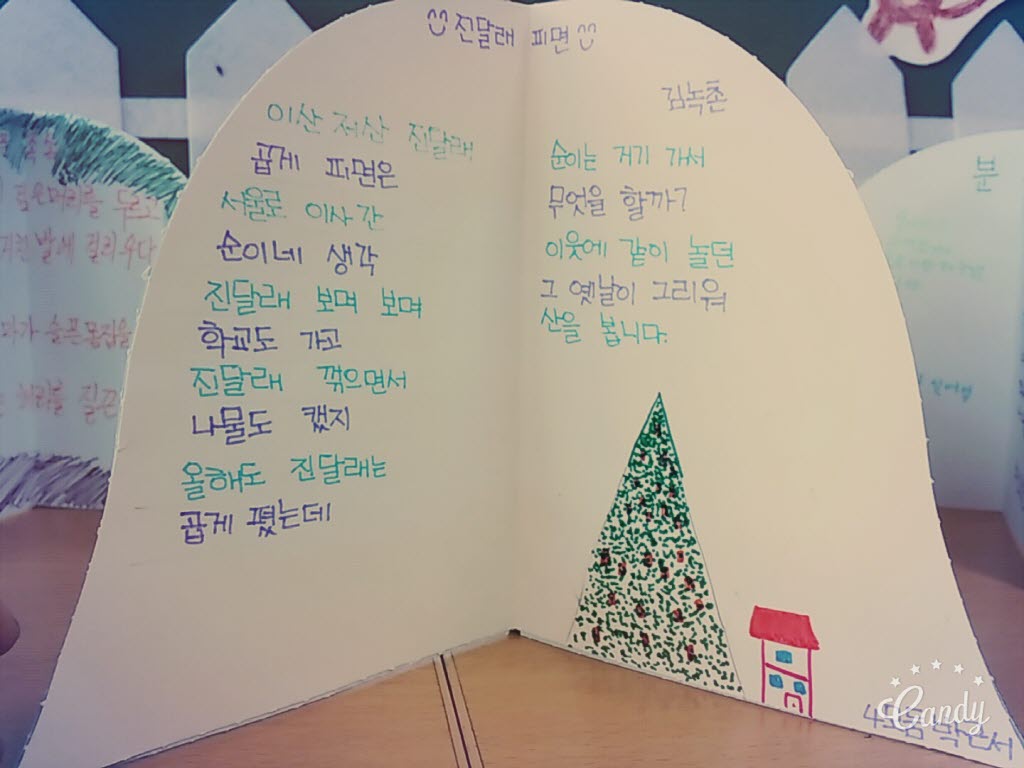 진달래 피면
김녹촌
이산 저산 진달래
곱게 피면은
서울로 이사간
순이네 생각
진달래 보며 보며
학교도 가고
진달래 꺾으면서
나물도 캤지
올해도 진달래는
곱게 폈는데
순이는 거기 가서
무엇을 할까?
이웃에 같이 놀던
그 옛날이 그리워
산을 봅니다.
분
Candy